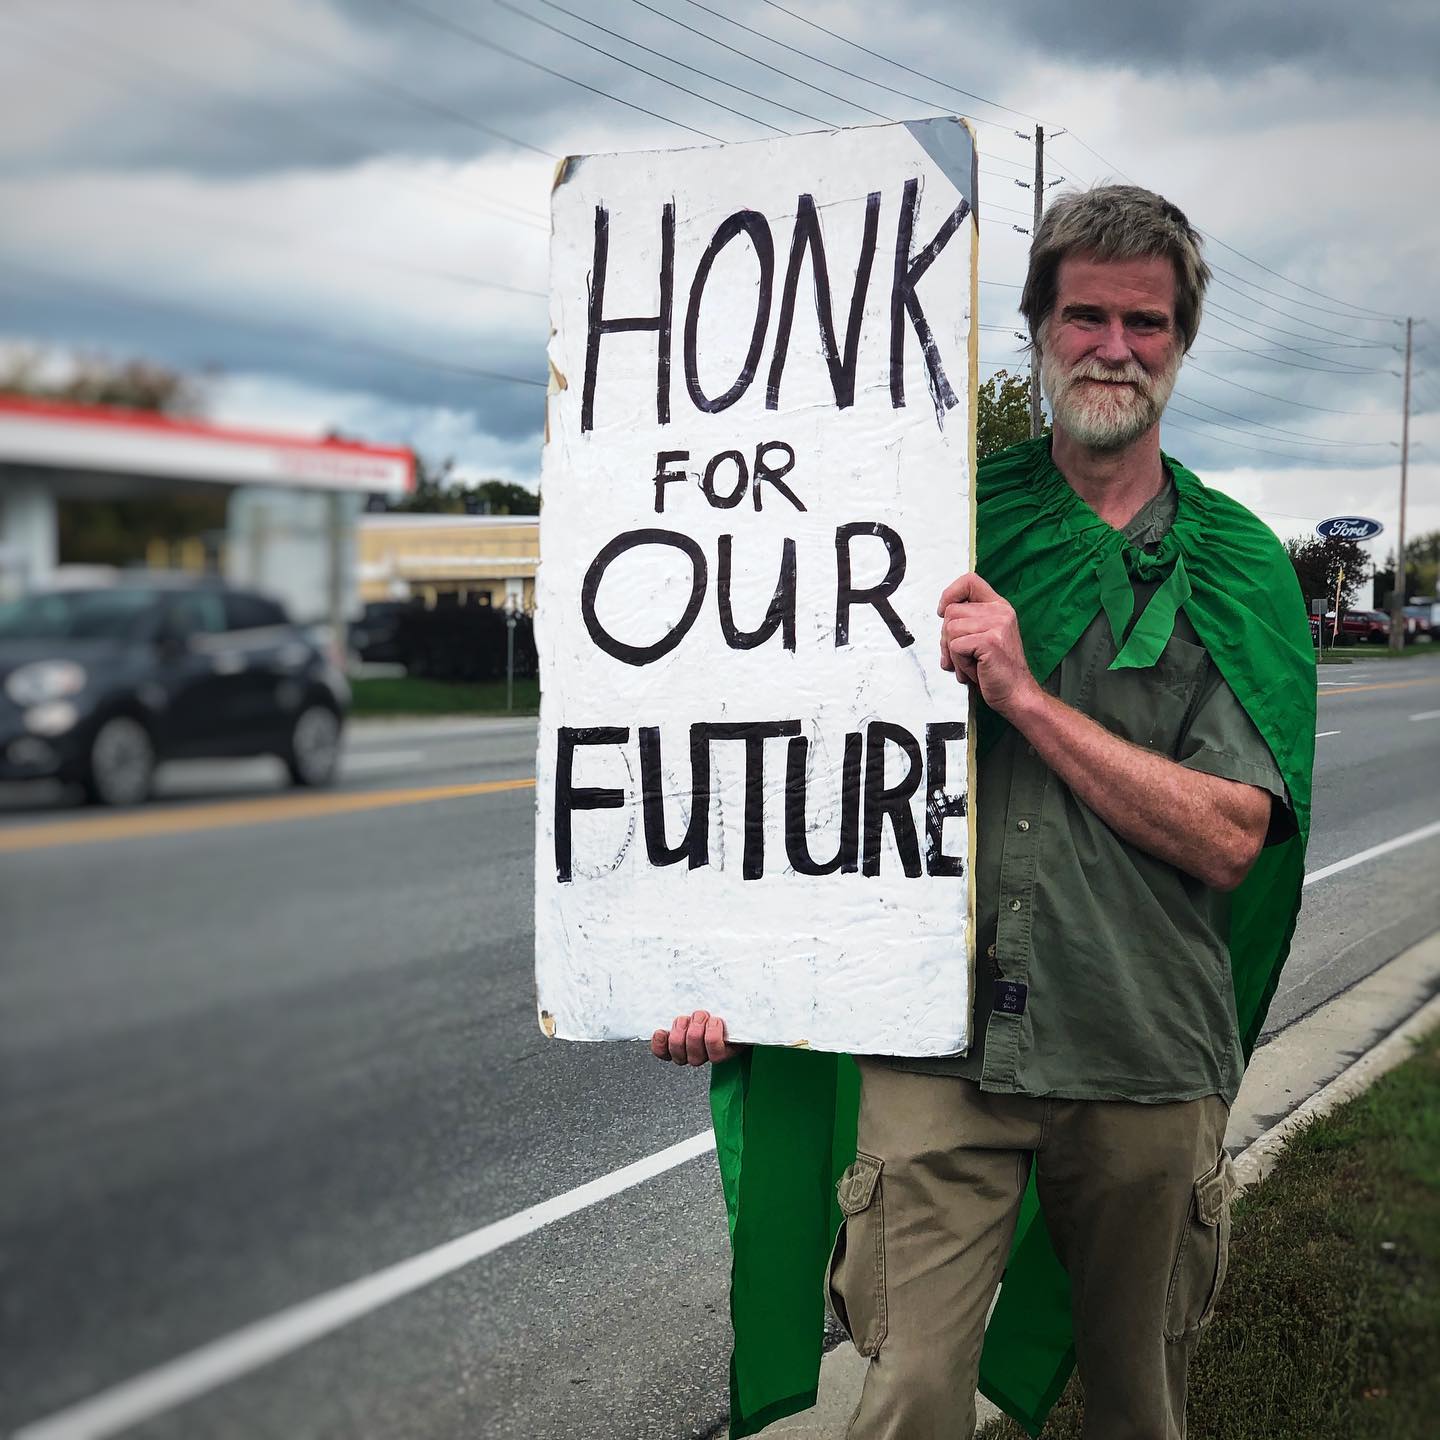 HONK
FOR
OUR
FUTURE
Ford